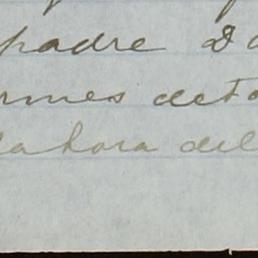 padre D
rmes deto
la hora del